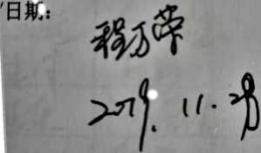 日期:
程万荣
2019.11.29